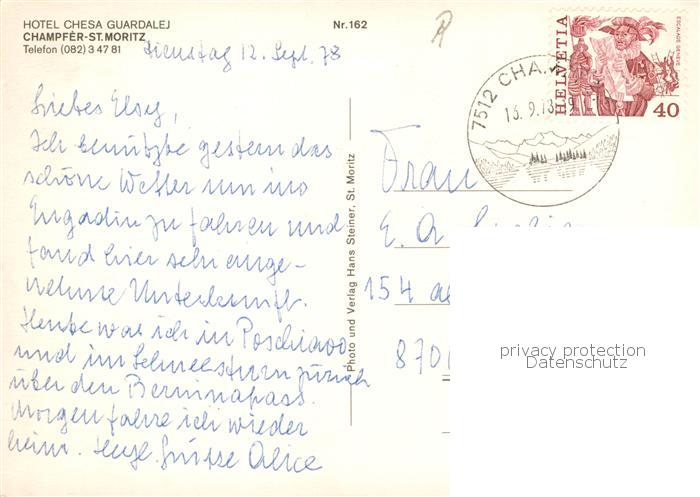 HOTEL CHESA GUARDALEJ
CHAMPFÈR-ST. MORITZ
Telefon (082) 3 47 81
Nr. 162
Dienstag 12. Sept. 78
Liebes Elsy,
Ich benützte gestern das
schöne Wetter um ins
Engadin zu fahren und
fand hier sehr ange-
nehme Unterkunft.
Heute war ich in Poschiavo
und im Schneesturm zurück
über den Berninapass.
Morgen fahre ich wieder
heim. Herzl. Grüsse Alice
Photo und Verlag Hans Steiner, St. Moritz
HELVETIA
ESCALADE GENÈVE
40
7512 CHA
13. 9. 78
Frau
E. A.
154
870
privacy protection
Datenschutz